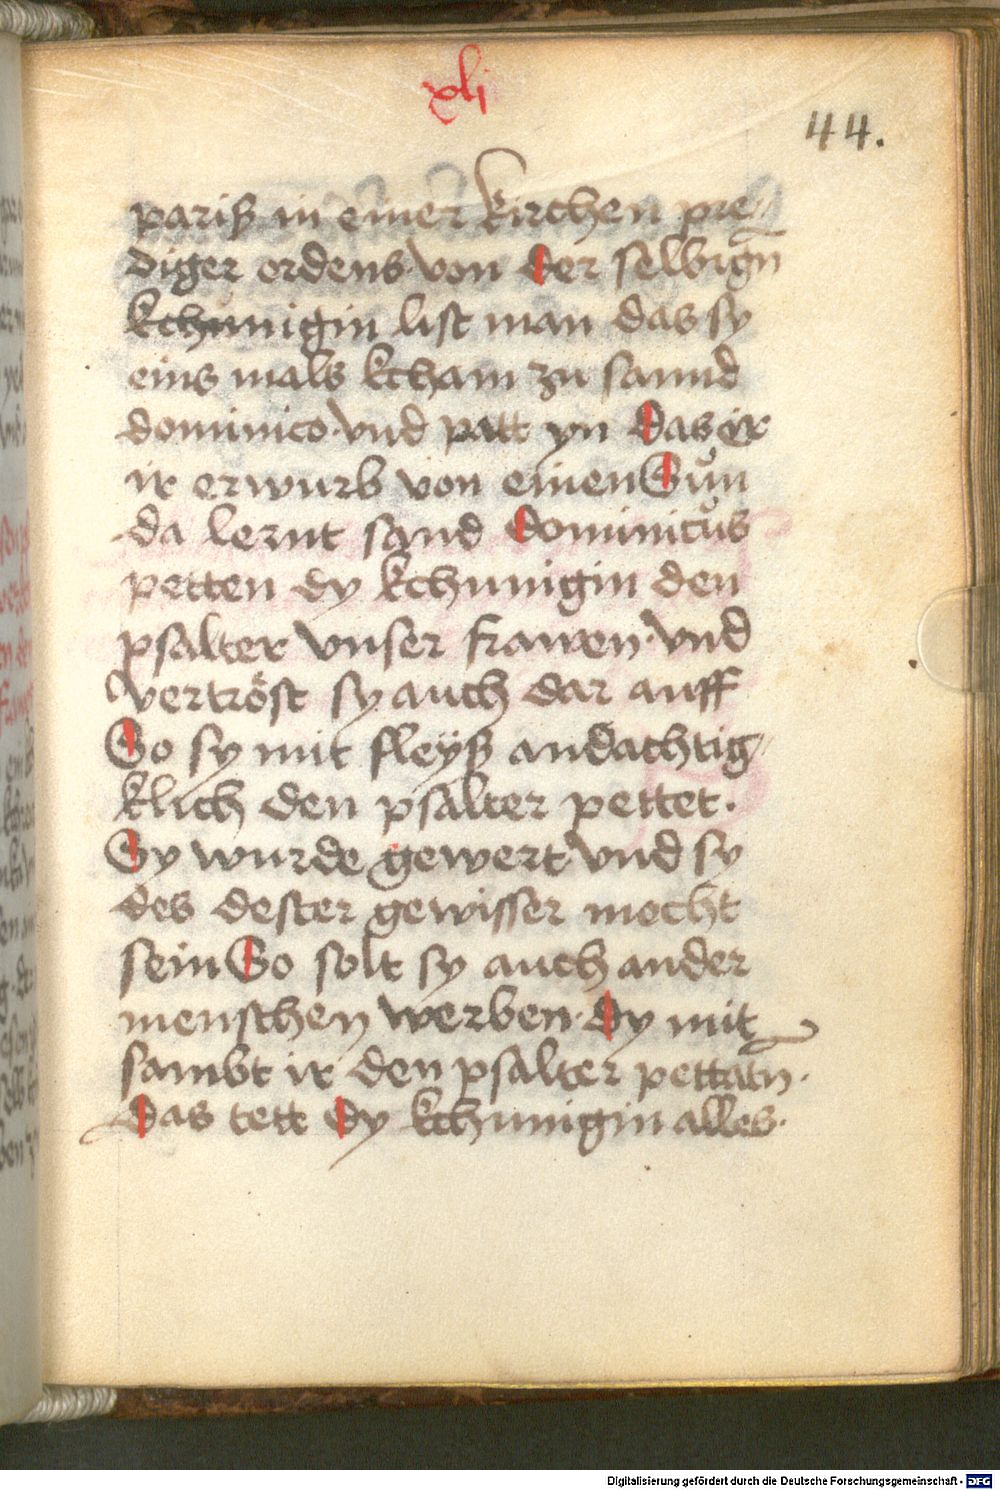 xlj
44.
pariß in einer kirchen pre¬
diger ordens von der selbign
kchunigin list man das sy
eins mals kcham zu sannd
dominico vnd patt yn das er
ir erwurb von einen Sůn
da lernt sand dominicůs
petten dy kchunigin den
psalter vnser frawen vnd
vertröst sy auch dar auff
So sy mit fleyß andachtig
klich den psalter pettet.
Sy wurde gewert vnd sy
des dester gewisser mocht
sein So solt sy auch ander
menschen werben dy mit
sambt ir den psalter pettatn̄.
das tett dy kchunigin alles.
Digitalisierung gefördert durch die Deutsche Forschungsgemeinschaft - DFG